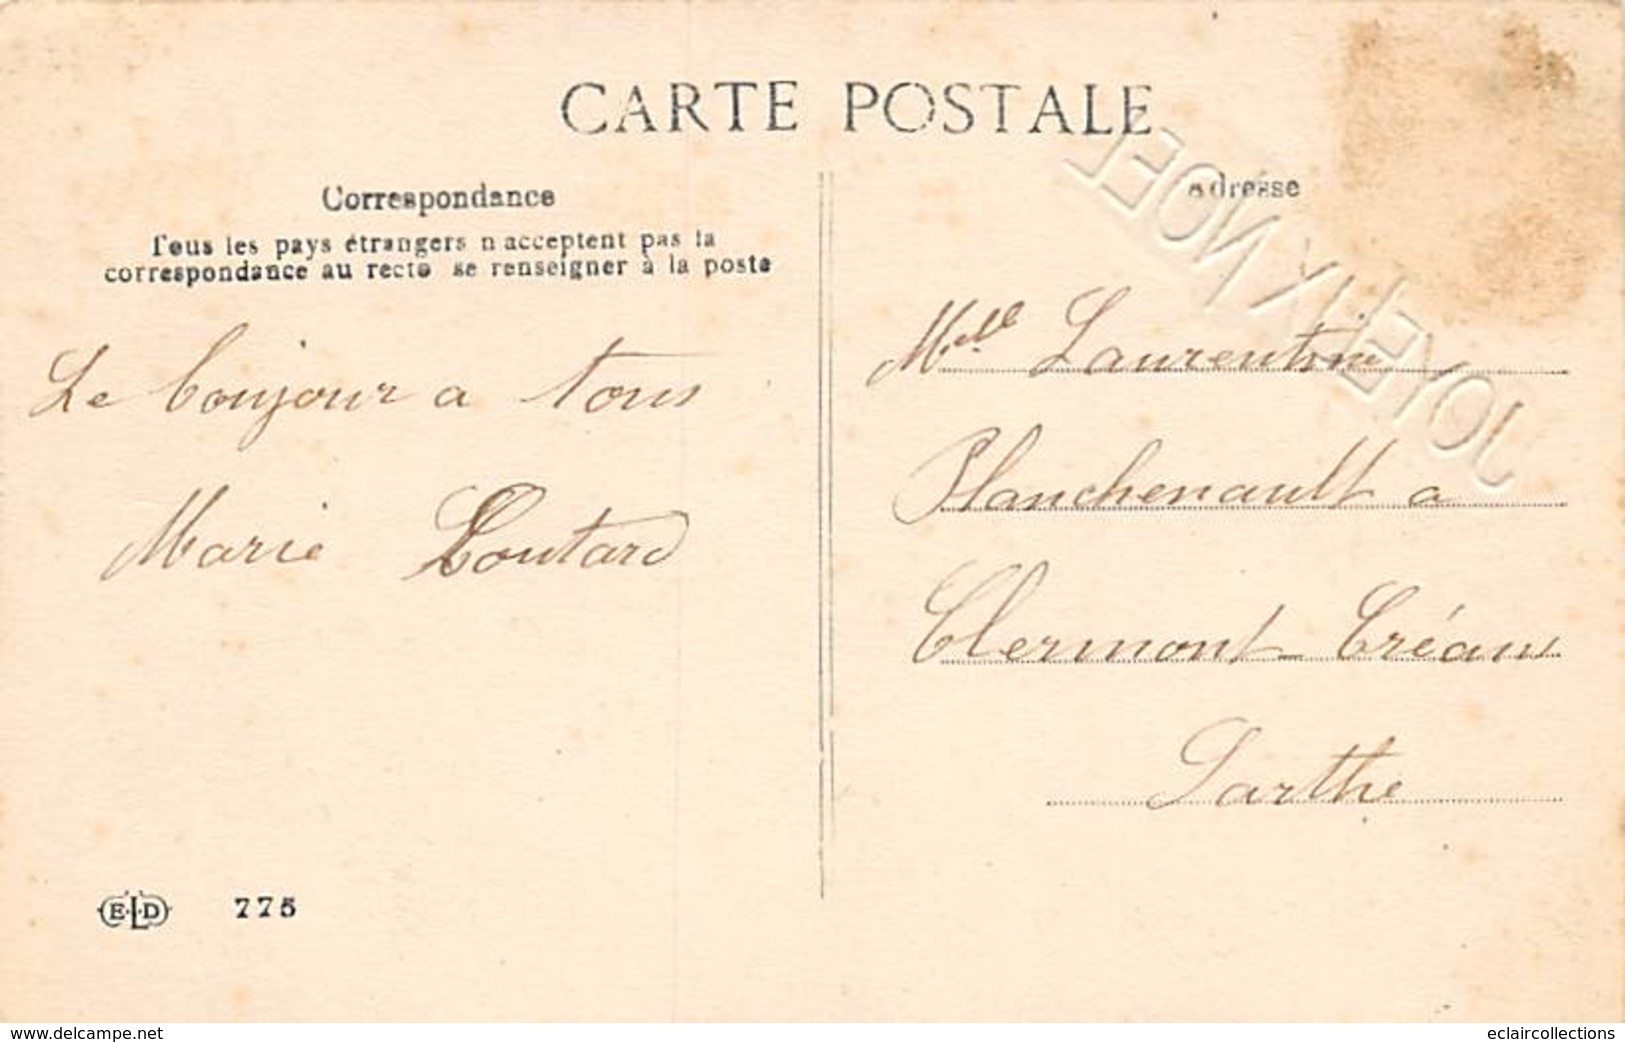 CARTE POSTALE
Correspondance
Tous les pays étrangers n'acceptent pas la
correspondance au recto se renseigner à la poste
Le bonjour a tous
Marie Loutard
ELD 775
Adresse
JOYEUX NOEL
Melle Laurentin
Planchenault a
Clermont Créans
Sarthe
www.delcampe.net
eclaircollections